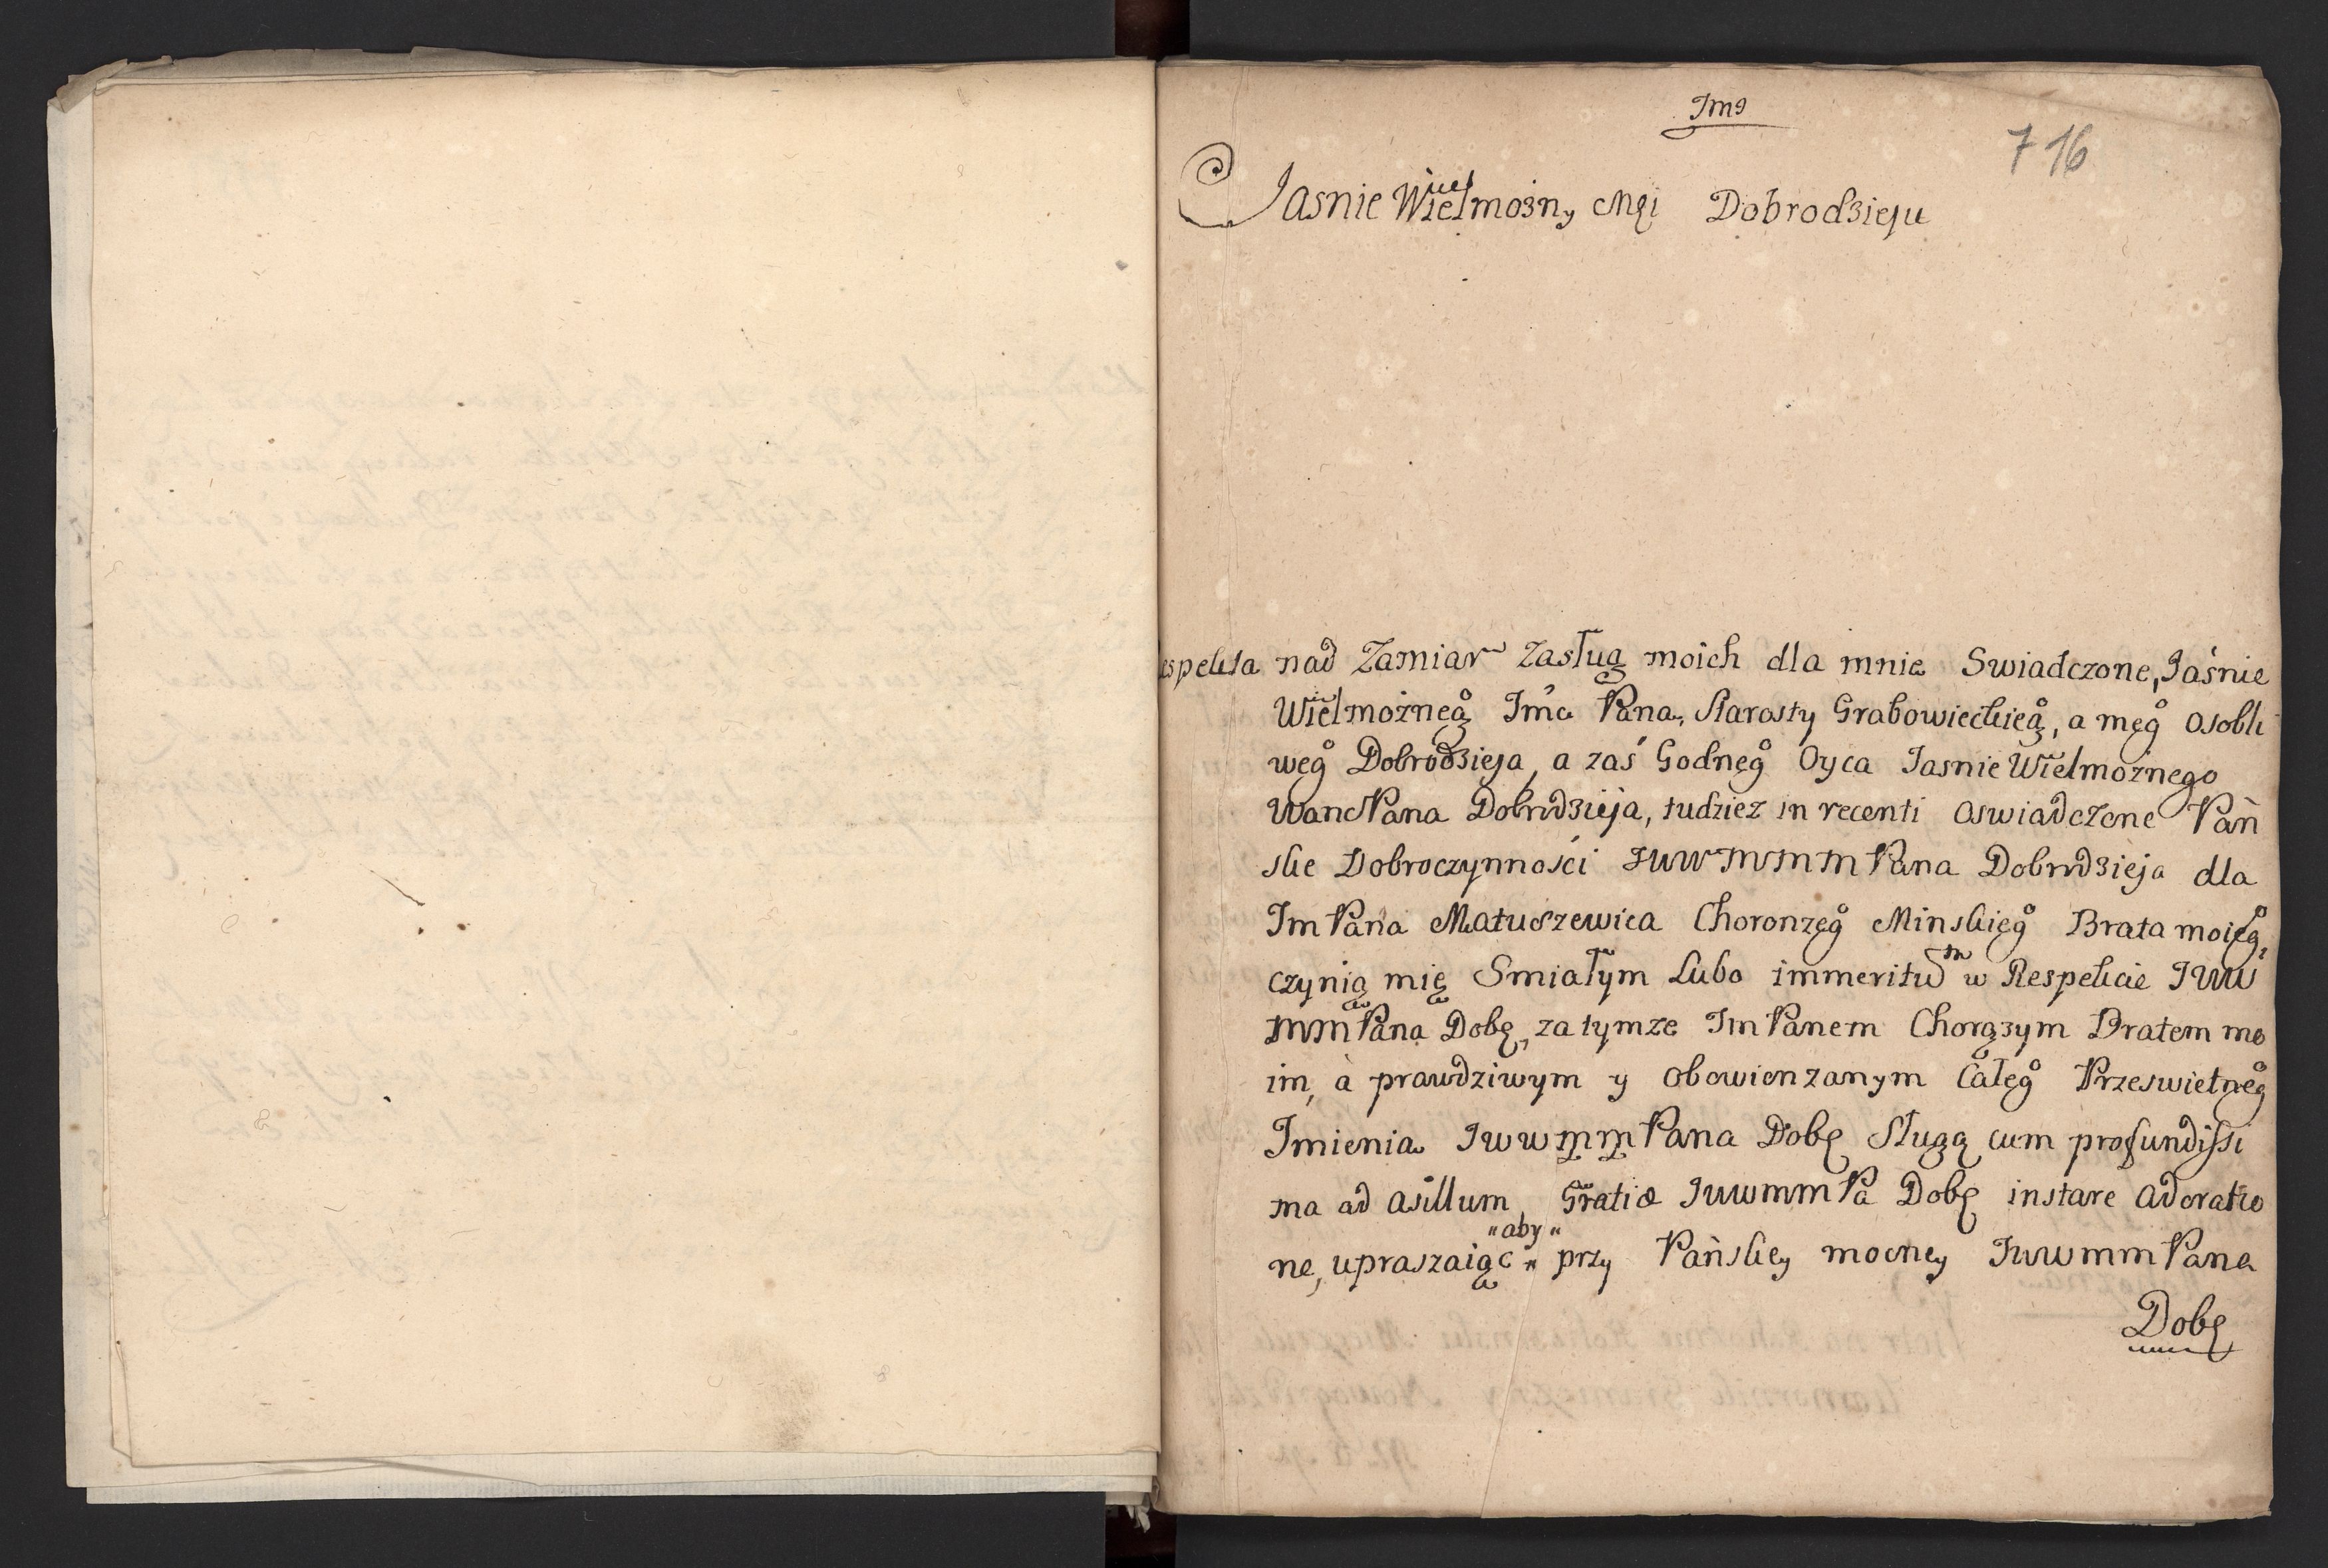 Jmo
716
Jasnie Wielmozny Mci Dobrodzieju
espekta nad Zamiar zasług moich dla mnie Swiadczone, Jaśnie
Wielmożnego Jmci Pana, Starosty Grabowieckiego, a mego osobli
wego Dobrodzieja, a zaś Godnego Oyca Jasnie Wielmożnego
WanciPana Dobrodzieja, tudziez in recenti oswiadczone Pań
skie Dobroczynności JWWMMMPana Dobrodzieja dla
JmPana Matuszewica Choronzego Minskiego Brata moiego,
czynią mię Smiałym Lubo immeritum w Respekcie JWW
MMPana Dobo, za tymze JmPanem Chorązym Bratem mo
im, a prawdziwym y obowienzanym Całego Przeswietnego
Jmienia JWWMMPana Dobo Sługą cum profundissi
ma ad asillum Gratiæ JWWMMPa Dobo instare adoratio
ne, upraszaiąc "aby" przy Pańskiey mocney JWWMMPana
Dobo